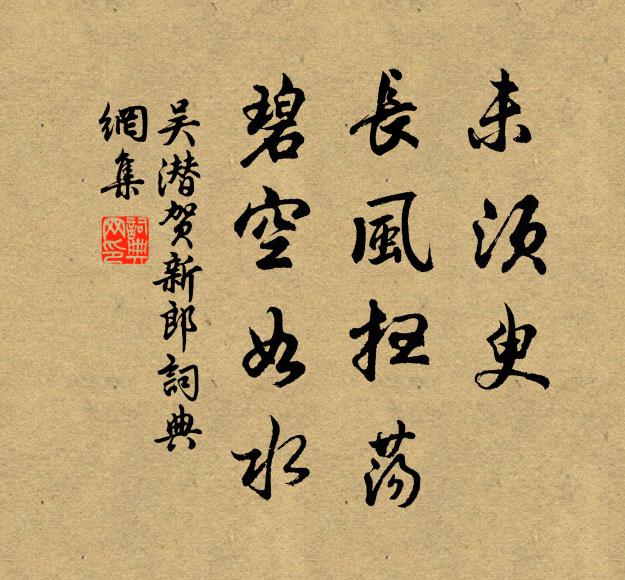 未須臾
長風掃蕩
碧空如水
吴潜賀新郎詞典
網集
詞典
网印